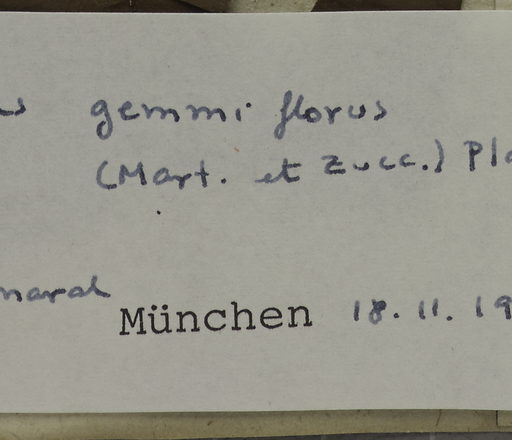 gemmiflorus
(Mart. et Zucc.) Pla
maral
München 18.11.19